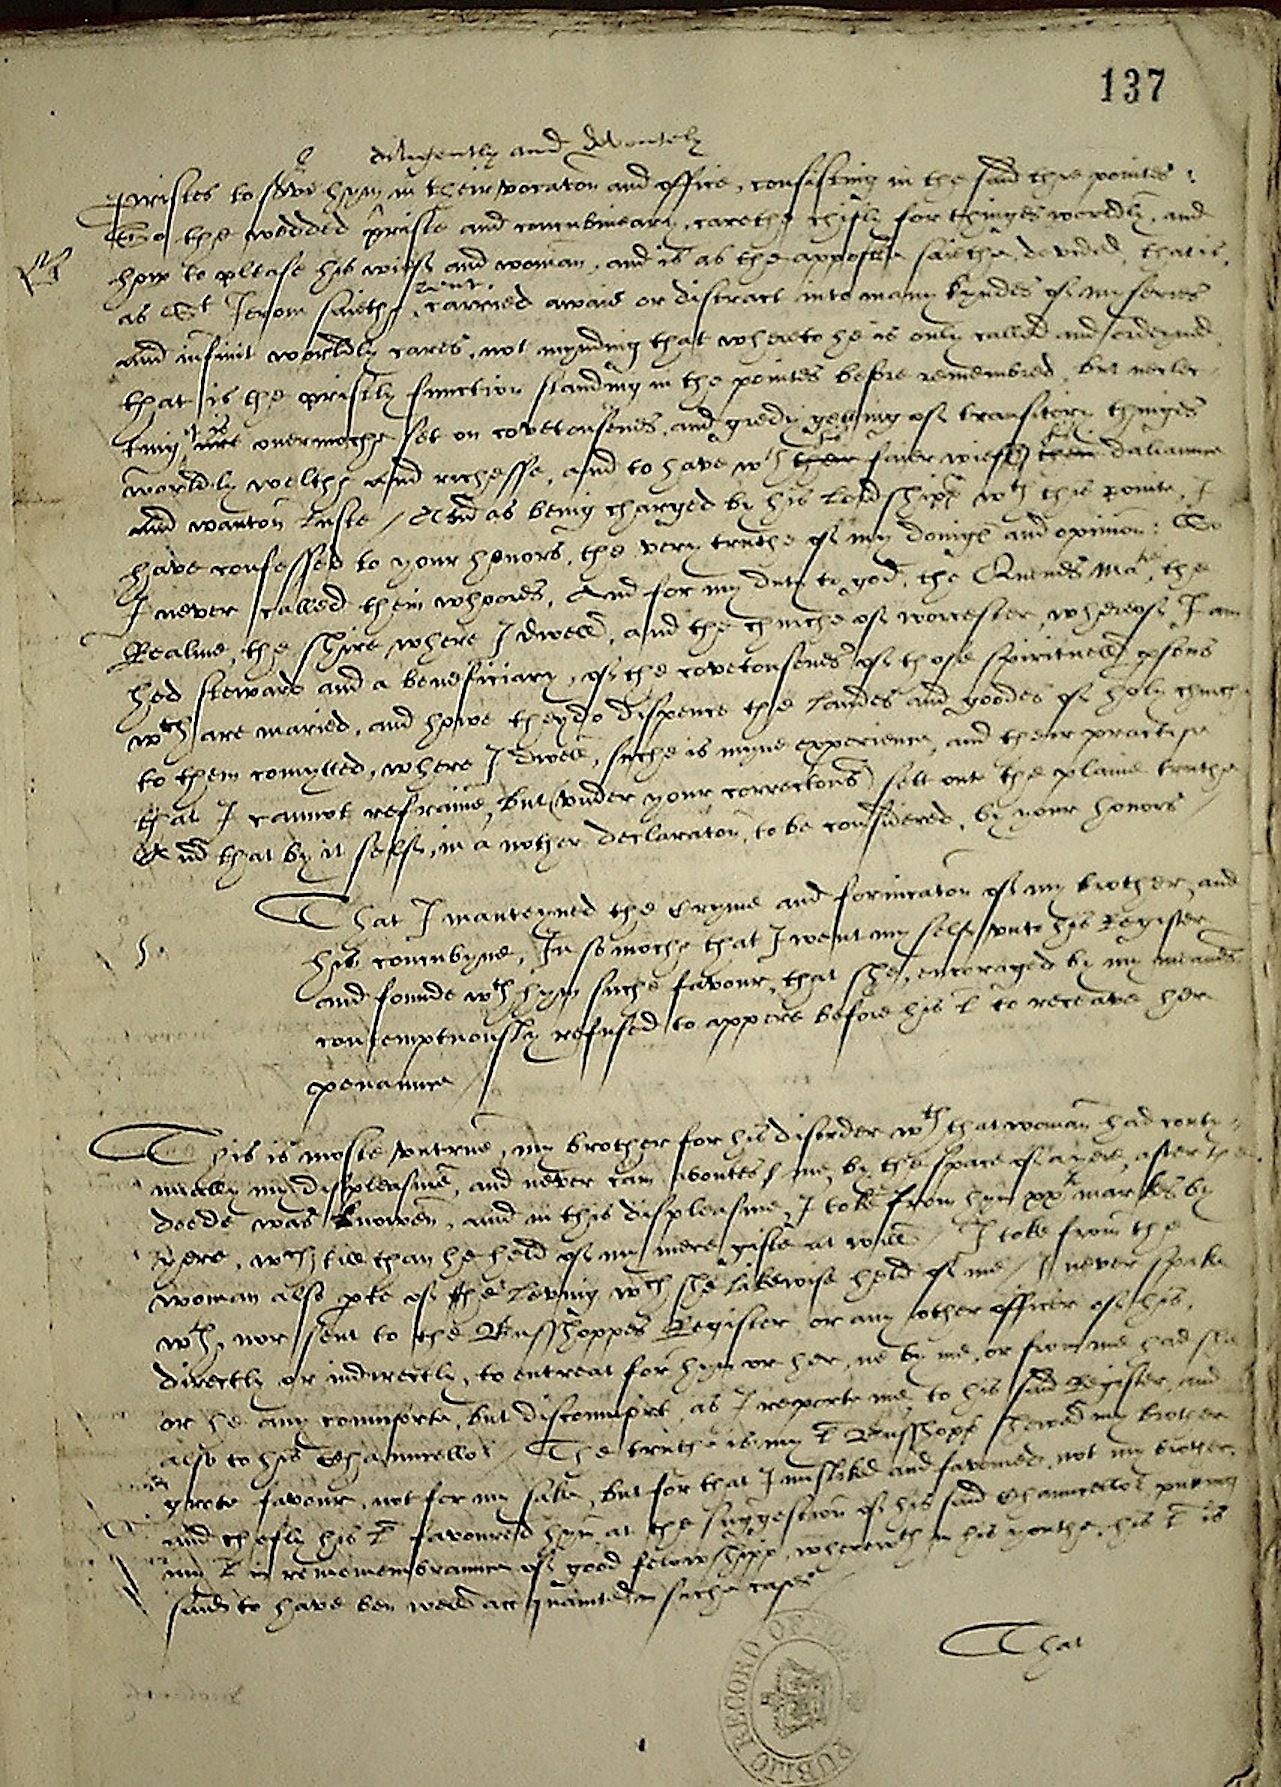 137
diligently and devoutely
pristes to serve hym in their vocaton and office, consisting in the said thre pointes:
So the wedded priste and concubineary, carethe chifly for thinges worldly, and
how to please his wief and woman, and is as the appostle saieth devided, that is,
as St Jerom saieth, rent, carried awaie or distract into many kyndes of myseries
and infinit worldly cares, not mynding that whereto he is only called and ordeyned
that is the pristly function standing in the pointes before remembred, but neclec-
ting it is overmoche set on covetousenes, and gredy getting of transitori thinges
worldly welthe and richesse, and to have wth ther his faier wief ther his daliaunce
and wanton luste / And as being charged by his Lordshipp wth this pointe, I
have confessed to your honors, the very truthe of my doinge and opinion: So
I never called them whoores, And for my duty to god, the Quenes Matie, the
Realme, the shire where I dwell, and the churche of worcester whereof I am
hed steward and a beneficiary, of the covetousenes of those spirituell psons
wch are maried, and howe they do dispence the landes and goodes of holy churche
to them comytted, where I dwell, suche is myne experience, and their practise
that I cannot refraine, but (under your correctons) sett out the plaine truthe
And that by it self, in a nother declaraton, to be considered, by your honors
5.
That I manteyned the Cryme and fornicaton of my brother, and
his concubyne, In so moche that I went my self unto his Register
and founde wth hym suche favour, that she, encoraged by my meanes
contemptuously refused to appere before his L to receave her
penaunce
This is moste untrue, my brother for his disorder wth that woman had conty-
nually my displeasure, and never cam aboutes me, by the space of a yere, after the
deede was knowen, and in this displeasure, I toke from hym xxti markes by
yere, wch till than he held of my mere gifte at will / I toke from the
woman also pte of the leving wch she likewise held of me / I never spake
wth, nor sent to the Busshoppes Register or any other officer of his,
directly or indirectly, to entreat for hym or her, ne by me, or from me had she
or he any comforte, but discomfort, as I reporte me, to his said Register, and
also to his Chauncellor / The truthe is, my L Busshopp shewed my brother
grete favour, not for my sake, but for that I misliked and favoured not my brother,
and chefly his L favoured hym at the suggestion of his said Chauncellor putting
my L in remembraunce of good felowshipp, wherewth in his youthe, his L is
saide to have ben well acquainted in suche cases
That
PUBLIC RECORD OFFICE